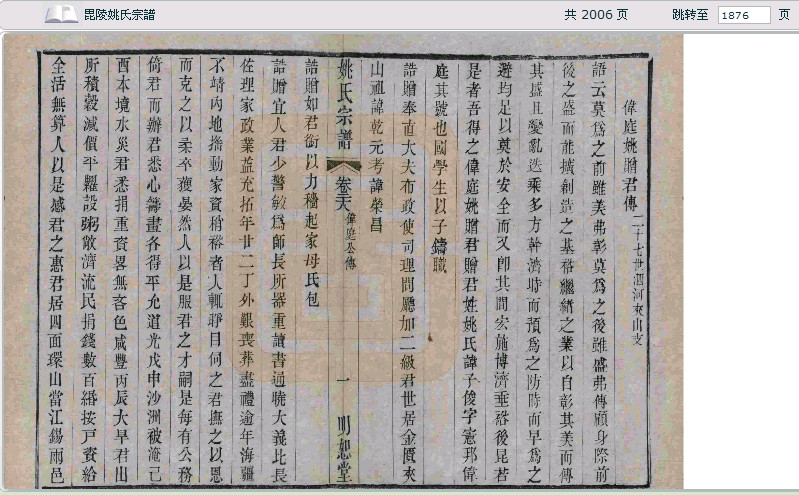 毘陵姚氏宗譜
共 2006 页
跳转至 1876 页
偉庭姚贈君傳 二十七世泗河夾山支
語云莫爲之前雖美弗彰莫爲之後雖盛弗傳顧身際前
後之盛而能擴創造之基裕繼緒之業以自彰其美而傳
其盛且變亂迭乘多方幹濟時而預爲之防時而早爲之
避均足以奠於安全而又卽其間宏施博濟垂裕後昆若
是者吾得之偉庭姚贈君贈君姓姚氏諱子俊字憲邦偉
庭其號也國學生以子鑄職
誥贈奉直大夫布政使司理問廳加二級君世居金匱夾
山祖諱乾元考諱榮昌
姚氏宗譜 卷六 偉庭公傳 一 明恕堂
誥贈如君銜以力穡起家母氏包
誥贈宜人君少警敏爲師長所器重讀書通曉大義比長
佐理家政業益充拓年廿二丁外艱喪葬盡禮逾年海疆
不靖內地搖動家資稍裕者人輒睜目伺之君撫之以恩
而克之以柔卒獲晏然人以是服君之才嗣是每有公務
倚君而辦君悉心籌畫各得平允道光戊申沙洲被淹己
酉本境水災君悉捐重資畧無吝色咸豐丙辰大旱君出
所積穀減價平糶設粥散濟流民捐錢數百緡按戸資給
全活無算人以是感君之惠君居四面環山當江錫兩邑